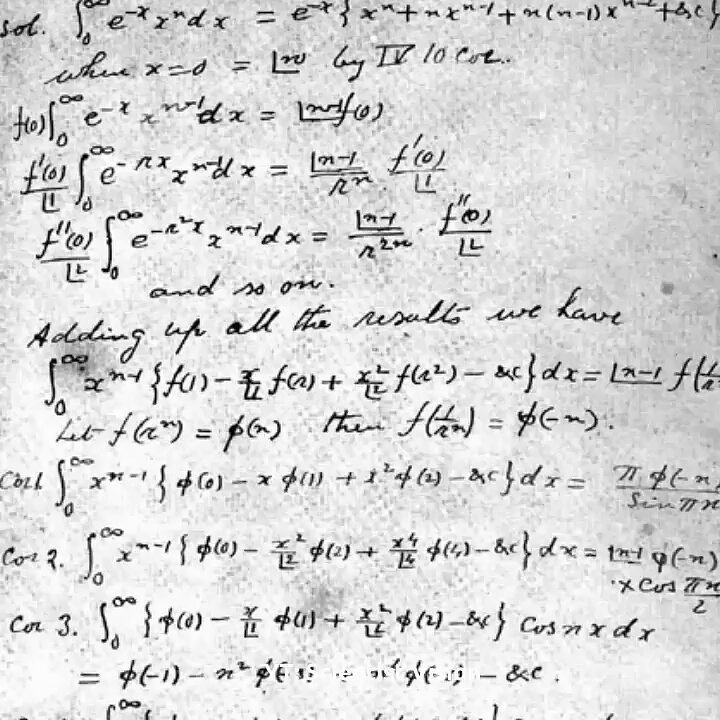 Sol. ∫₀^∞ e^{-x} x^n dx = e^{-x} { x^n + n x^{n-1} + n(n-1) x^{n-2} + &c }
when x=0 = |n by IV 10 cor.
f(0) ∫₀^∞ e^{-x} x^{n-1} dx = |n-1 f(0)
f'(0)/|1 ∫₀^∞ e^{-rx} x^{n-1} dx = |n-1/r^n · f'(0)/|1
f''(0)/|2 ∫₀^∞ e^{-r²x} x^{n-1} dx = |n-1/r^{2n} · f''(0)/|2
and so on.
Adding up all the results we have
∫₀^∞ x^{n-1} { f(1) - x/|1 f(r) + x²/|2 f(r²) - &c } dx = |n-1 f(1/r
Let f(r^n) = φ(n) then f(1/r^n) = φ(-n).
Cor 1 ∫₀^∞ x^{n-1} { φ(0) - x φ(1) + x² φ(2) - &c } dx = π φ(-n)/Sin πn
Cor 2. ∫₀^∞ x^{n-1} { φ(0) - x²/|2 φ(2) + x⁴/|4 φ(4) - &c } dx = |n-1 φ(-n)
× Cos πn/2
Cor 3. ∫₀^∞ { φ(0) - x/|1 φ(1) + x²/|2 φ(2) - &c } Cos nx dx
= φ(-1) - n² φ( - &c.